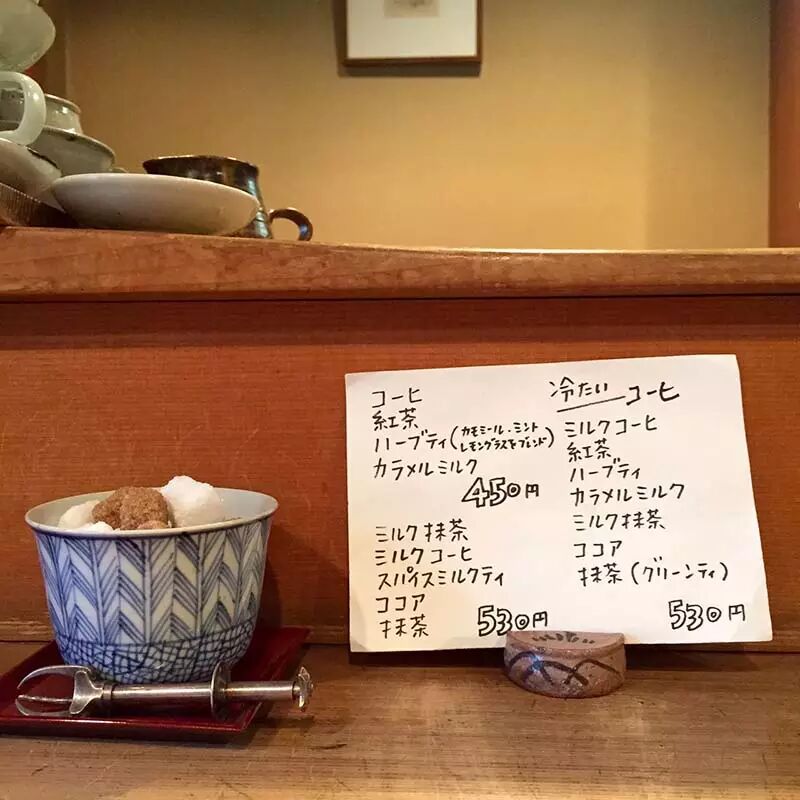 コーヒ
紅茶
ハーブティ(カモミール・ミント
レモングラスをブレンド)
カラメルミルク
450円
ミルク抹茶
ミルクコーヒ
スパイスミルクティ
ココア
抹茶 530円
冷たい コーヒ
ミルクコーヒ
紅茶
ハーブティ
カラメルミルク
ミルク抹茶
ココア
抹茶(グリーンティ)
530円